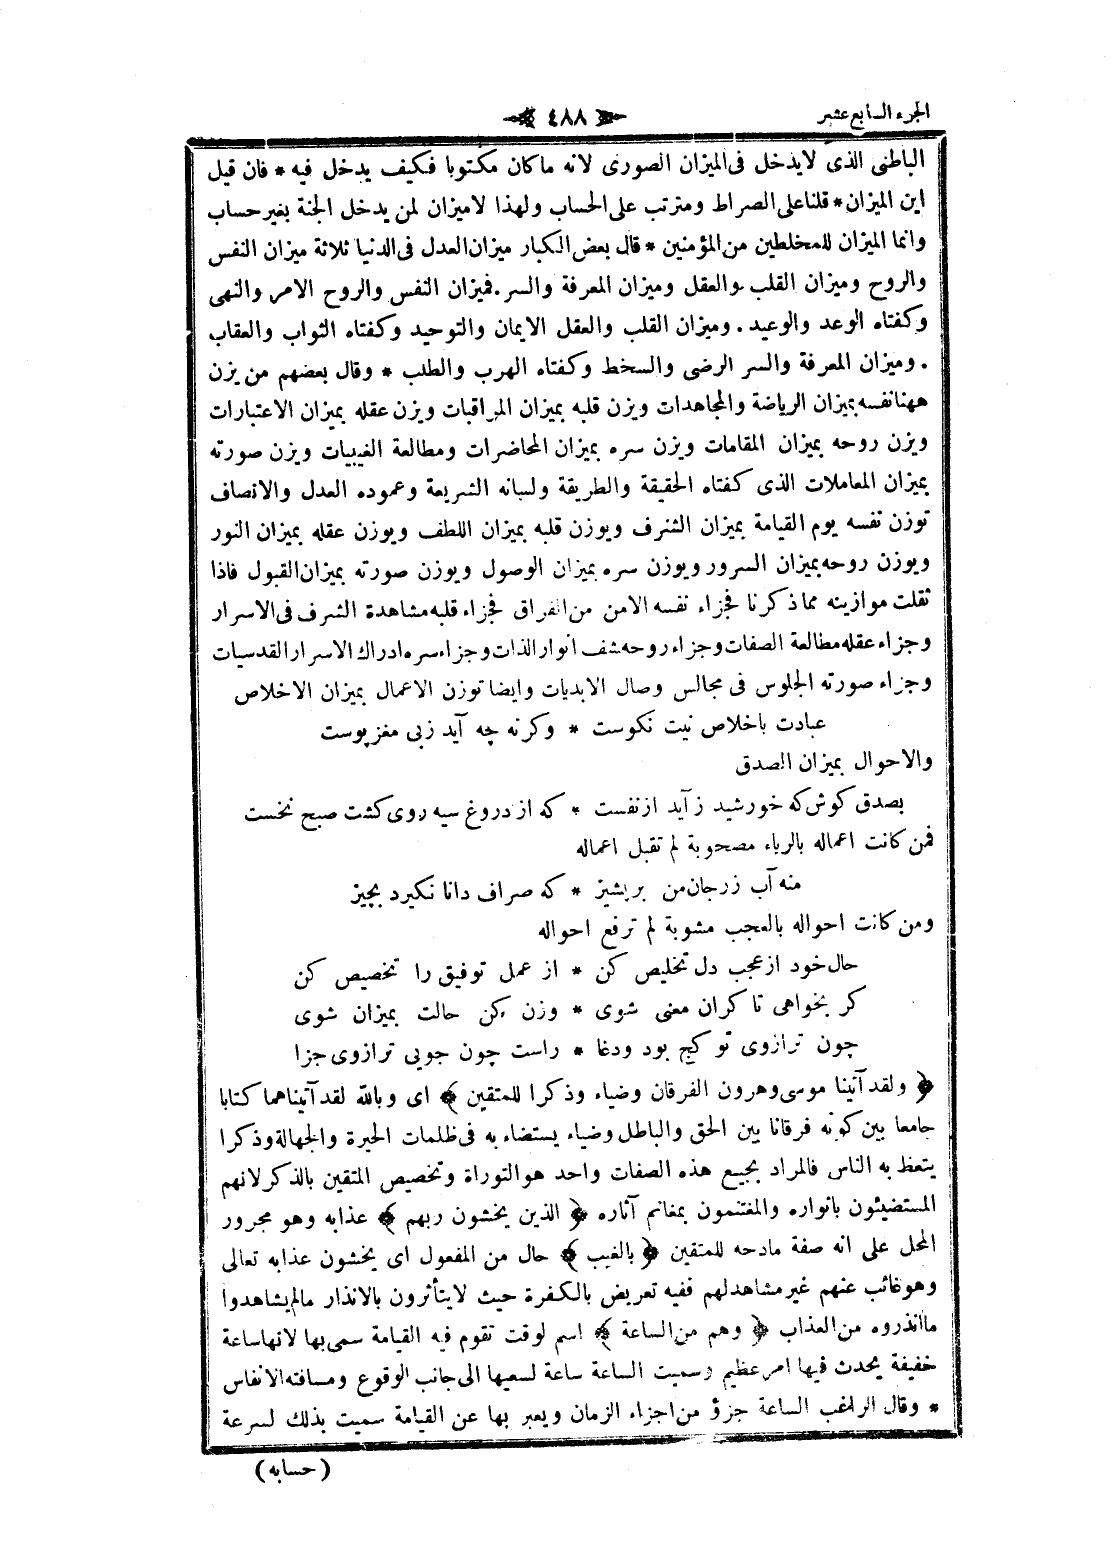 الجزء السابع عشر
٤٨٨
الباطنى الذى لايدخل فى الميزان الصورى لانه ما كان مكتوبا فكيف يدخل فيه * فان قيل
اين الميزان * قلنا على الصراط ومترتب على الحساب ولهذا لاميزان لمن يدخل الجنة بغير حساب
وانما الميزان للمخلطين من المؤمنين * قال بعض الكبار ميزان العدل فى الدنيا ثلاثة ميزان النفس
والروح وميزان القلب والعقل وميزان المعرفة والسر . فميزان النفس والروح الامر والنهى
وكفتاه الوعد والوعيد . وميزان القلب والعقل الايمان والتوحيد وكفتاه الثواب والعقاب
. وميزان المعرفة والسر الرضى والسخط وكفتاه الهرب والطلب * وقال بعضهم من يزن
ههنا نفسه بميزان الرياضة والمجاهدات ويزن قلبه بميزان المراقبات ويزن عقله بميزان الاعتبارات
ويزن روحه بميزان المقامات ويزن سره بميزان المحاضرات ومطالعة الغيبيات ويزن صورته
بميزان المعاملات الذى كفتاه الحقيقة والطريقة ولسانه الشريعة وعموده العدل والانصاف
توزن نفسه يوم القيامة بميزان الشرف ويوزن قلبه بميزان اللطف ويوزن عقله بميزان النور
ويوزن روحه بميزان السرور ويوزن سره بميزان الوصول ويوزن صورته بميزان القبول فاذا
ثقلت موازينه مما ذكرنا فجزاء نفسه الامن من الفراق فجزاء قلبه مشاهدة الشرف فى الاسرار
وجزاء عقله مطالعة الصفات وجزاء روحه كشف انوار الذات وجزاء سره ادراك الاسرار القدسيات
وجزاء صورته الجلوس فى مجالس وصال الابديات وايضا توزن الاعمال بميزان الاخلاص
عبادت باخلاص نيت نكوست * وكرنه چه آيد زبى مغز پوست
والاحوال بميزان الصدق
بصدق كوش كه خورشيد زايد از نفست * كه از دروغ سيه روى كشت صبح نخست
فمن كانت اعماله بالرياء مصحوبة لم تقبل اعماله
منه آب زر جان من بر پشيز * كه صراف دانا نكيرد بچيز
ومن كانت احواله بالعجب مشوبة لم ترفع احواله
حال خود از عجب دل تخليص كن * از عمل توفيق را تخصيص كن
كر بخواهى تا كران معنى شوى * وزن كن حالت بميزان شوى
چون ترازوى تو كج بود ودغا * راست چون جويى ترازوى جزا
﴿ ولقد آتينا موسى وهرون الفرقان وضياء وذكرا للمتقين ﴾ اى وبالله لقد آتيناهما كتابا
جامعا بين كونه فرقانا بين الحق والباطل وضياء يستضاء به فى ظلمات الحيرة والجهالة وذكرا
يتعظ به الناس فالمراد بجميع هذه الصفات واحد هو التوراة وتخصيص المتقين بالذكر لانهم
المستضيئون بانواره والمغتنمون بمغانم آثاره ﴿ الذين يخشون ربهم ﴾ عذابه وهو مجرور
المحل على انه صفة مادحه للمتقين ﴿ بالغيب ﴾ حال من المفعول اى يخشون عذابه تعالى
وهو غائب عنهم غير مشاهد لهم ففيه تعريض بالكفرة حيث لايتأثرون بالانذار مالم يشاهدوا
ماانذروه من العذاب ﴿ وهم من الساعة ﴾ اسم لوقت تقوم فيه القيامة سمى بها لانها ساعة
خفيفة يحدث فيها امر عظيم وسميت الساعة ساعة لسعيها الى جانب الوقوع ومسافته الانفاس
* وقال الراغب الساعة جزؤ من اجزاء الزمان ويعبر بها عن القيامة سميت بذلك لسرعة
( حسابه )